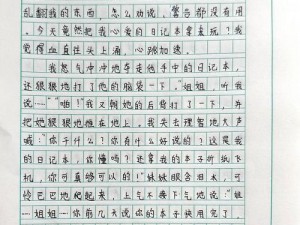 乱翻我的东西，怎么劝说，警告都没有用
。今天竟然把我心爱的日记本拿着玩？我
觉得血直往头上涌，心跳加速。
我怒气冲冲地夺走他手中的日记本，
还狠狠地打了他的脑袋一下。“姐姐，听我
说……”“啪！”我又朝她的后背打了一下，并
把她狠狠地推在地上。我失去理智地大声
喊：“你干什么？你有什么好说的？这是我
的日记本，你懂吗？还拿我的本子折纸飞
机，你可真够可以的！”妹妹眼含泪水，可
怜巴巴地爬起来，上气不接下气地说：“姐
……姐姐……你前几天说你的本子快用完了，